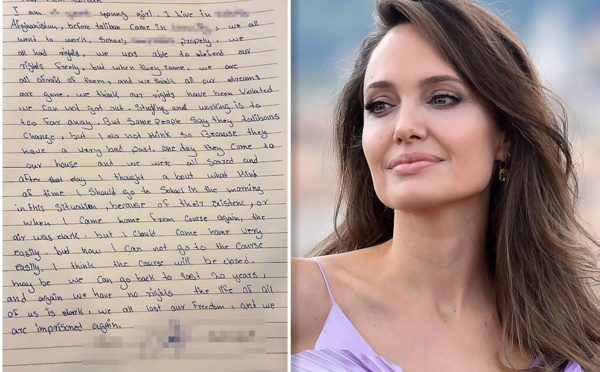 I am a young girl, I live in
Afghanistan, before taliban came in we all
want to work, school, propely, we
all had rights, we was able to defend our
rights freely, but when they come, we are
all afraid of them, and we think all our dreams
are gone. We think our rights have been violated
we can not got out. Studing and working is to
too far away. But some people say they talibans
change, but I do not think so. Because they
have a very bad past, one day they come to
our house and we were all scared and
after that day I thought a bout what kind
of time I should go to school in the morning
in this situation, because of their existenc, or
when I came home from course again, the
air was dark, but I could come home very
easily, but now I can not go to the course
easily, I think the course will be closed.
may be we can go back to last 20 years,
and again we have no rights the life of all
of us is dark, we all lost our freedom, and we
are imprisoned again.